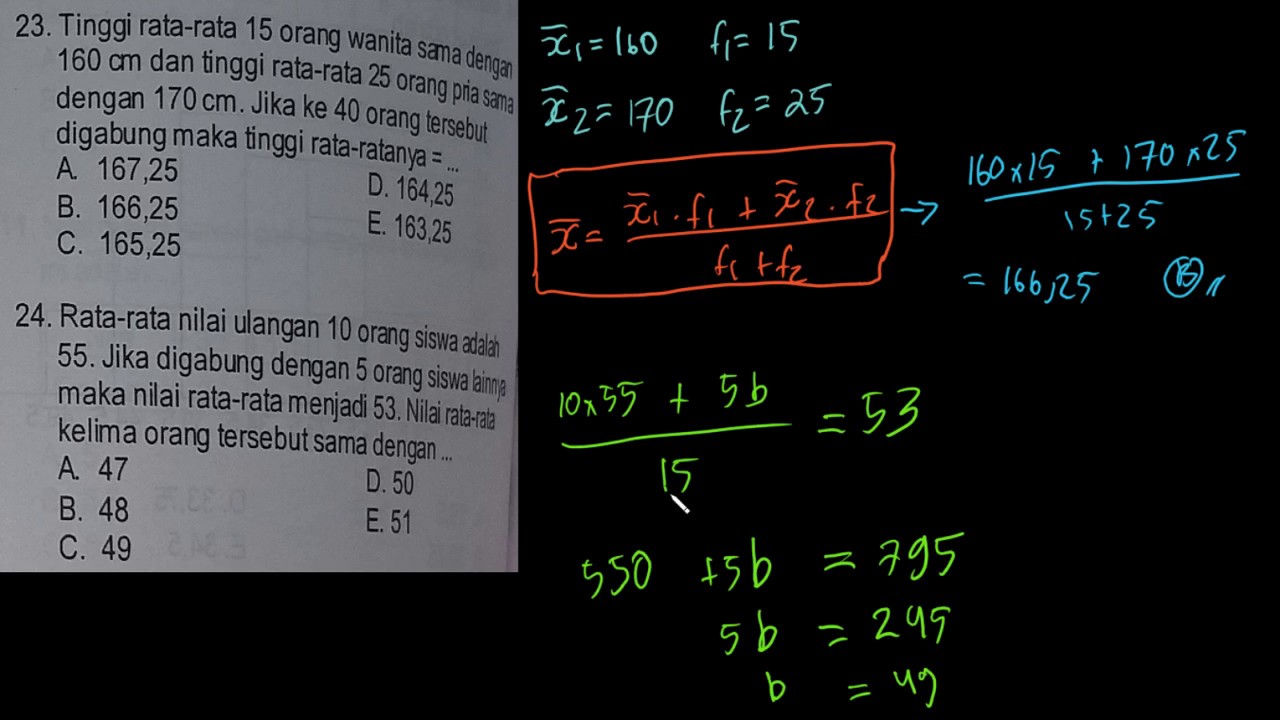 23. Tinggi rata-rata 15 orang wanita sama dengan
160 cm dan tinggi rata-rata 25 orang pria sama
dengan 170 cm. Jika ke 40 orang tersebut
digabung maka tinggi rata-ratanya = ...
A. 167,25
D. 164,25
B. 166,25
E. 163,25
C. 165,25
24. Rata-rata nilai ulangan 10 orang siswa adalah
55. Jika digabung dengan 5 orang siswa lainnya
maka nilai rata-rata menjadi 53. Nilai rata-rata
kelima orang tersebut sama dengan ...
A. 47
D. 50
B. 48
E. 51
C. 49
x̄₁ = 160 f₁ = 15
x̄₂ = 170 f₂ = 25
x̄ = x̄₁ . f₁ + x̄₂ . f₂
f₁ + f₂
→ 160 x 15 + 170 x 25
15 + 25
= 166,25 B
10 x 55 + 5b = 53
15
550 + 5b = 795
5b = 245
b = 49